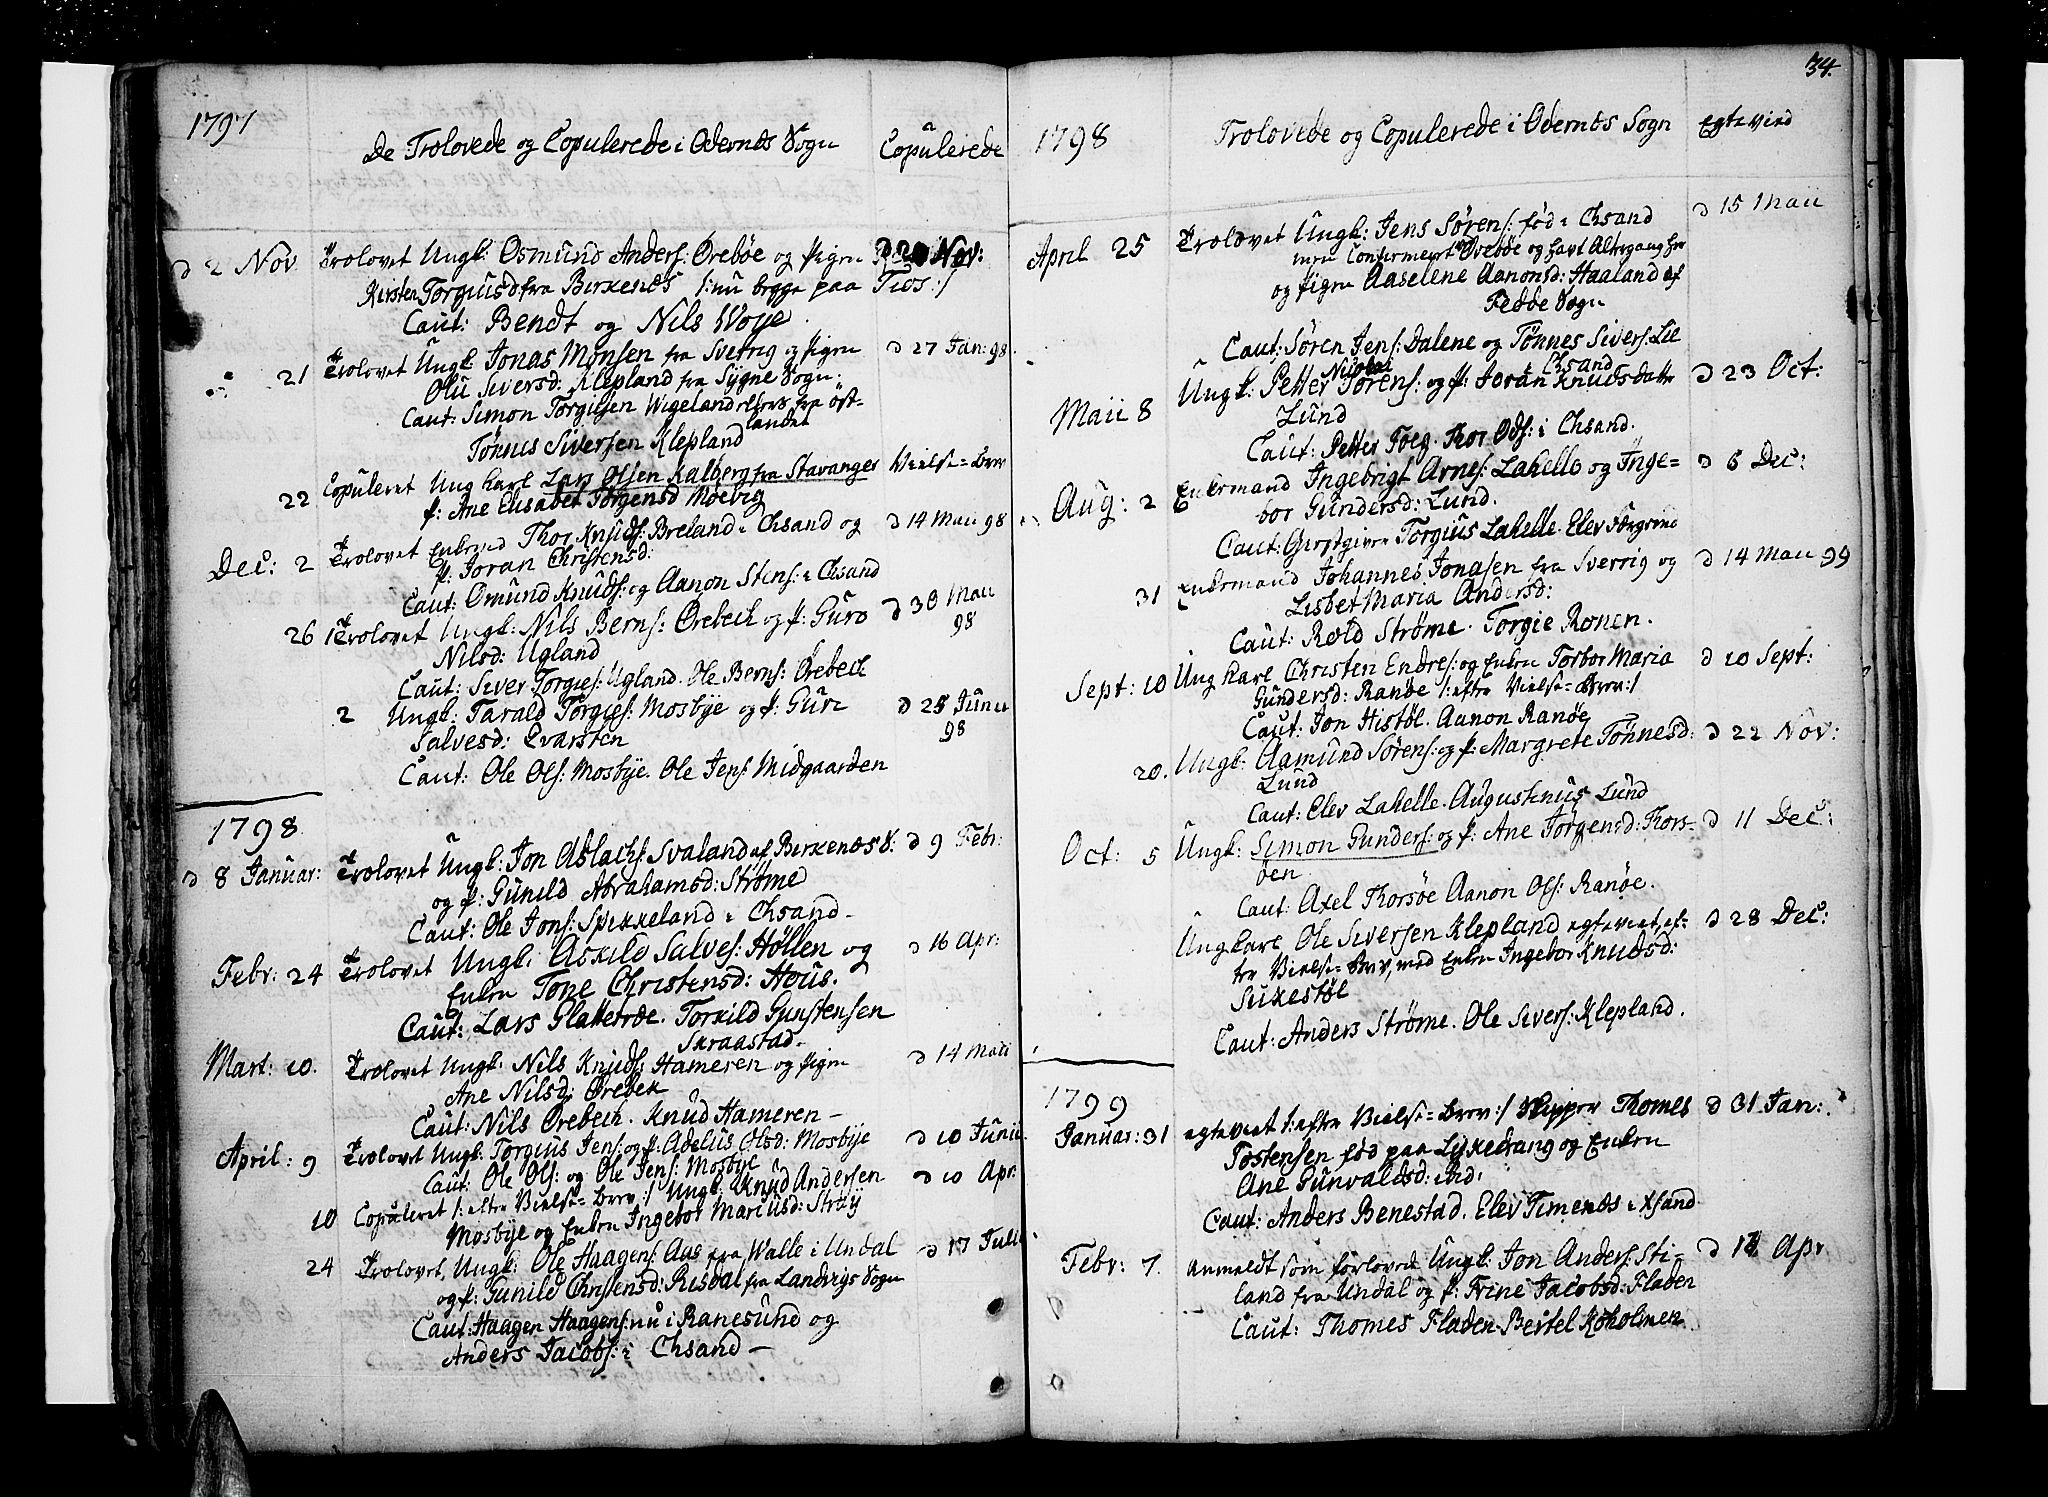 1797
De Trolovede og Copulerede i Odernes Sogn
Copulerede
d 2 Nov. Trolovet Ungk: Osmund Anders: Ørebøe og Pigen Nov:
Kirsten Torgiusd fra Birkenes /:nu begge paa Fios:/
Caut: Bendt og Nils Woye.
21 Trolovet Ungk Jonas Monsen fra Sverrig og Pigen d 27 Jan: 98.
Olu Siversd: Klepland fra Sygne Sogn.
Caut: Simon Torgilsen Wigeland ellers fra öst-
landet
Tönnis Siversen Klepland
22 Copuleret Ung karl Lars Olsen Kalberg fra Stavanger Vielse=Brev
P: Ane Elisabet Jörgensd Möevig
Dec: 2 Trolovet Enkemd Thor Knuds: Breland i Chsand og d 14 Maii 98
P: Joran Christensd:
Caut: Omund Knuds: og Aanon Stens: i Chsand
26 Trolovet Ungk: Nils Berns: Ørebech og P: Guro d 30 Maii
98
Nilsd: Ugland
Caut: Siver Torgies: Ugland. Ole Berns: Ørebech
2 Ungk: Tarald Torgies: Mosbye og P: Guri d 25 Junii
98
Salvesd: Qvarsten
Caut: Ole Ols: Mosbye. Ole Jens: Midgaarden
1798
d 8 Januar: Trolovet Ungk: Jon Aslachs: Svaland af Birkenes S: d 9 Febr:
og P: Gunild Abrahamsd: Strøme
Caut: Ole Jons: Spikkeland i Chsand-
Febr: 24 Trolovet Ungk: Askild Salves: Höllen og d 16 Apr:
Enken Tone Christensd: Hous.
Caut: Lars Glatterøe. Torkild Gunstensen
Skraastad-
Mart: 10. Trolovet Ungk: Nils Knuds: Hameren og Pigen d 14 Maii
Ane Nilsd: Ørebek
Caut: Nils Ørebech. Knud Hameren-
April: 9 Trolovet Ungk: Torgius Jens: og P. Adelus Olsd: Mosbye d 10 Junii
Caut: Ole Ols: og Ole Jens: Mosbye
10 Copuleret /: efter Vielse=Brev:/ Ungk: Knud Andersen d 10 Apr:
Mosbye og Enken Ingebor Mariusd: Strøy
24 Trolovet, Ungk: Ole Haagens: Aas fra Walle i Undal d 17 Julii
og P: Gunild Chrstensd: Risdal fra Landvigs Sogn
Caut: Haagen Haagens: nu i Ranesund og
Anders Jacobs: i Chsand-
34.
1798
Trolovede og Copulerede i Odernes Sogn
Egteviede
April 25 Trolovet Ungk: Jens Sørens: fød i Chsand d 15 Maii
men Confirmeert Ørebøe og havt Altergang her
og Pigen Aaselene Aanonsd: Haaland af
Fedde Sogn
Caut: Søren Jens: Dalene og Tønnes Sivers: Lie
Chsand
Maii 8 Ungk: Petter Nicolai Sørens: og P: Joran Knudsdatter d 23 Oct:
Lund
Caut: Petter Foeg. Thor Ods: i Chsand.
Aug: 2 Enkemand Ingebrigt Arnes: Lahelle og Inge= d 6 Dec:
bor Gundersd: Lund.
Caut: Giestgiver Torgius Lahelle. Elev Torgrims
31 Enkemand Johannes Jonasen fra Sverrig og d 14 Maii 99
Lisbet Maria Andersd:
Caut: Rold Strøme. Torgie Ronen.
Sept: 10 Ung karl Christen Endres: og Enken Torbor Maria d 10 Sept:
Gundersd: Ranøe /: efter Vielse=Brev:/
Caut: Jon Histöl. Aanon Ranøe
20. Ungk: Aamund Sørens: og P: Margrete Tønnesd: d 22 Nov:
Lund
Caut: Elev Lahelle. Augustinus Lund
Oct: 5 Ungk: Simon Gunders: og P: Ane Jörgensd: Thors- d 11 Dec:
öen
Caut: Axel Thorsöe Aanon Ols: Ranøe.
Ungkarl Ole Siversen Klepland egteviet, ef= d 28 Dec:
ter Vielse=Brev, med Enken Ingebor Knudsd:
Sukestöl
Caut: Anders Strøme. Ole Sivers: Klepland.
1799
Januar: 31 egteviet /: efter Vielse=Brev:/ Skipper Thomes d 31 Jan:
Tostensen fød paa Lykkedrang og Enken
Ane Gunvaldsd: ibid:
Caut: Anders Benestad. Elev Timenes i Xsand
Febr: 7. anmeldt som forlovede Ungk: Jon Anders: Sti= d 14 Apr
land fra Undal og P: Trine Jacobsd: Fladen
Caut: Thomes Fladen. Bertel Koholmen